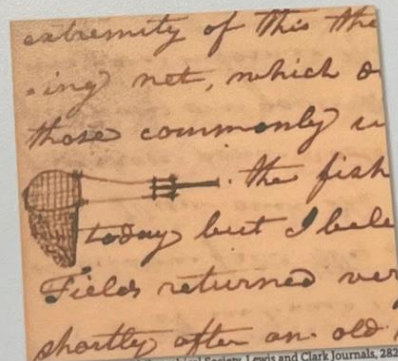 extremity of this the
ing net, which o
those commonly u
the fish
today but I bele
Fields returned ver
shortly after an old
Society, Lewis and Clark Journals, 282